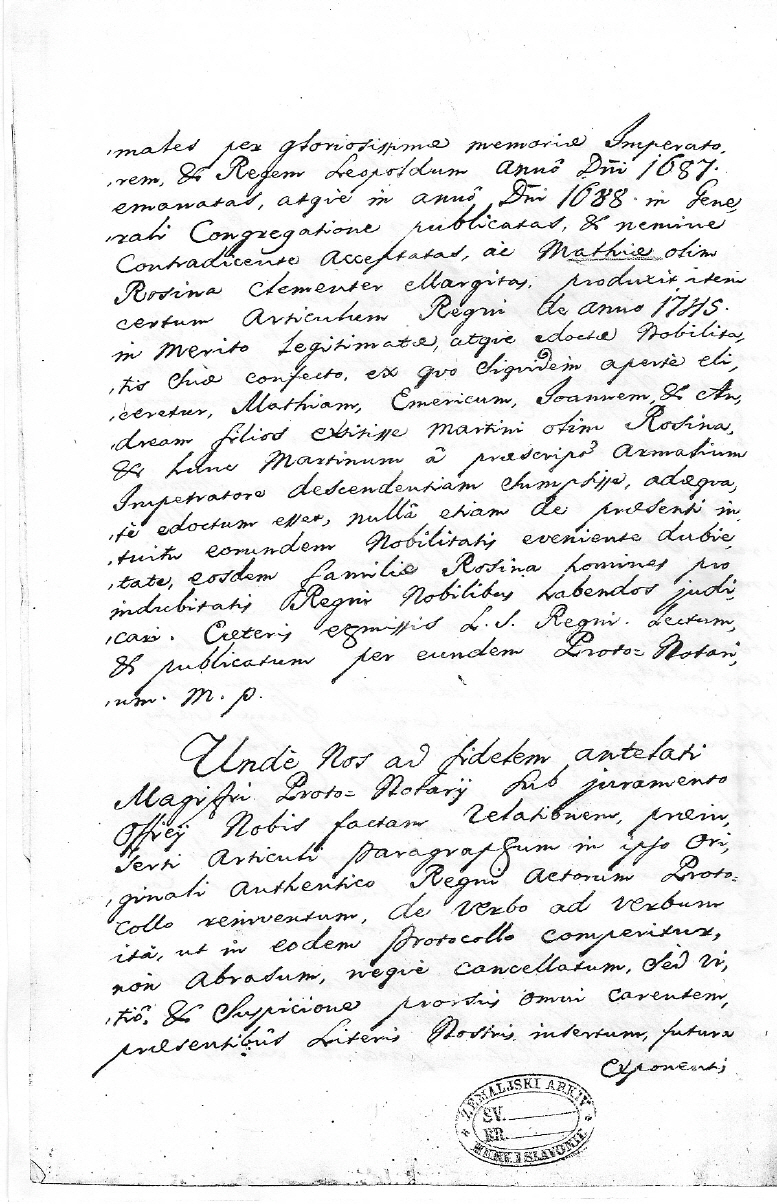 ,males per gloriosissimæ memoriæ Imperato,
,rem, & Regem Leopoldum annô Dñi 1687.
emanatas, atqvè in annô Dñi 1688. in Gene,
,rali Congregatione publicatas, & nemine
Contradicente Acceptatas, ac Mathiæ olim
Rosina Clementer Margitas. produxit item
certum Articulum Regni de anno 1745.
in merito Legitimatæ, atqve edoctæ Nobilita,
,tis suæ confecto, ex qvo siqvidem apertè eli,
,ceretur, Mathiam, Emericum, Joannem, & An,
,dream filios extitisse Martini olim Rosina,
& hunc Martinum â præscripto Armalium
Impetratore descendentiam sumpsisse, adæqva,
,tè edoctum esset, nullâ etiam de præsenti in,
,tuitu eorundem Nobilitatis eveniente dubie,
,tate, eosdem familiæ Rosina homines pro
indubitatis Regni Nobilibus habendos judi,
,cari. Cæteris omissis L. S. Regni. Lectum,
& publicatum per eundem Proto= Notari,
,um. m. p.
Undè Nos ad fidelem antelati
Magistri Proto= Notarij sub juramento
Officij Nobis factam relationem, præin,
serti Articuli Paragraphum in ipso Ori,
,ginali authentico Regni Actorum Proto=
collo reinventum, de verbo ad verbum
ità, ut in eodem Protocollo comperitur,
non Abrasum, neqvè cancellatum, sed vi,
,tiô, & Suspicione prorsùs omni carentem,
præsentibùs Literis Nostris insertum, futura
Exponentis
ZEMALJSKI ARKIV
SV.
BR.
HRV. I SLAVONIJE